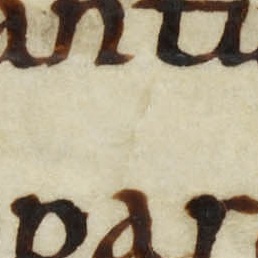 antu
par